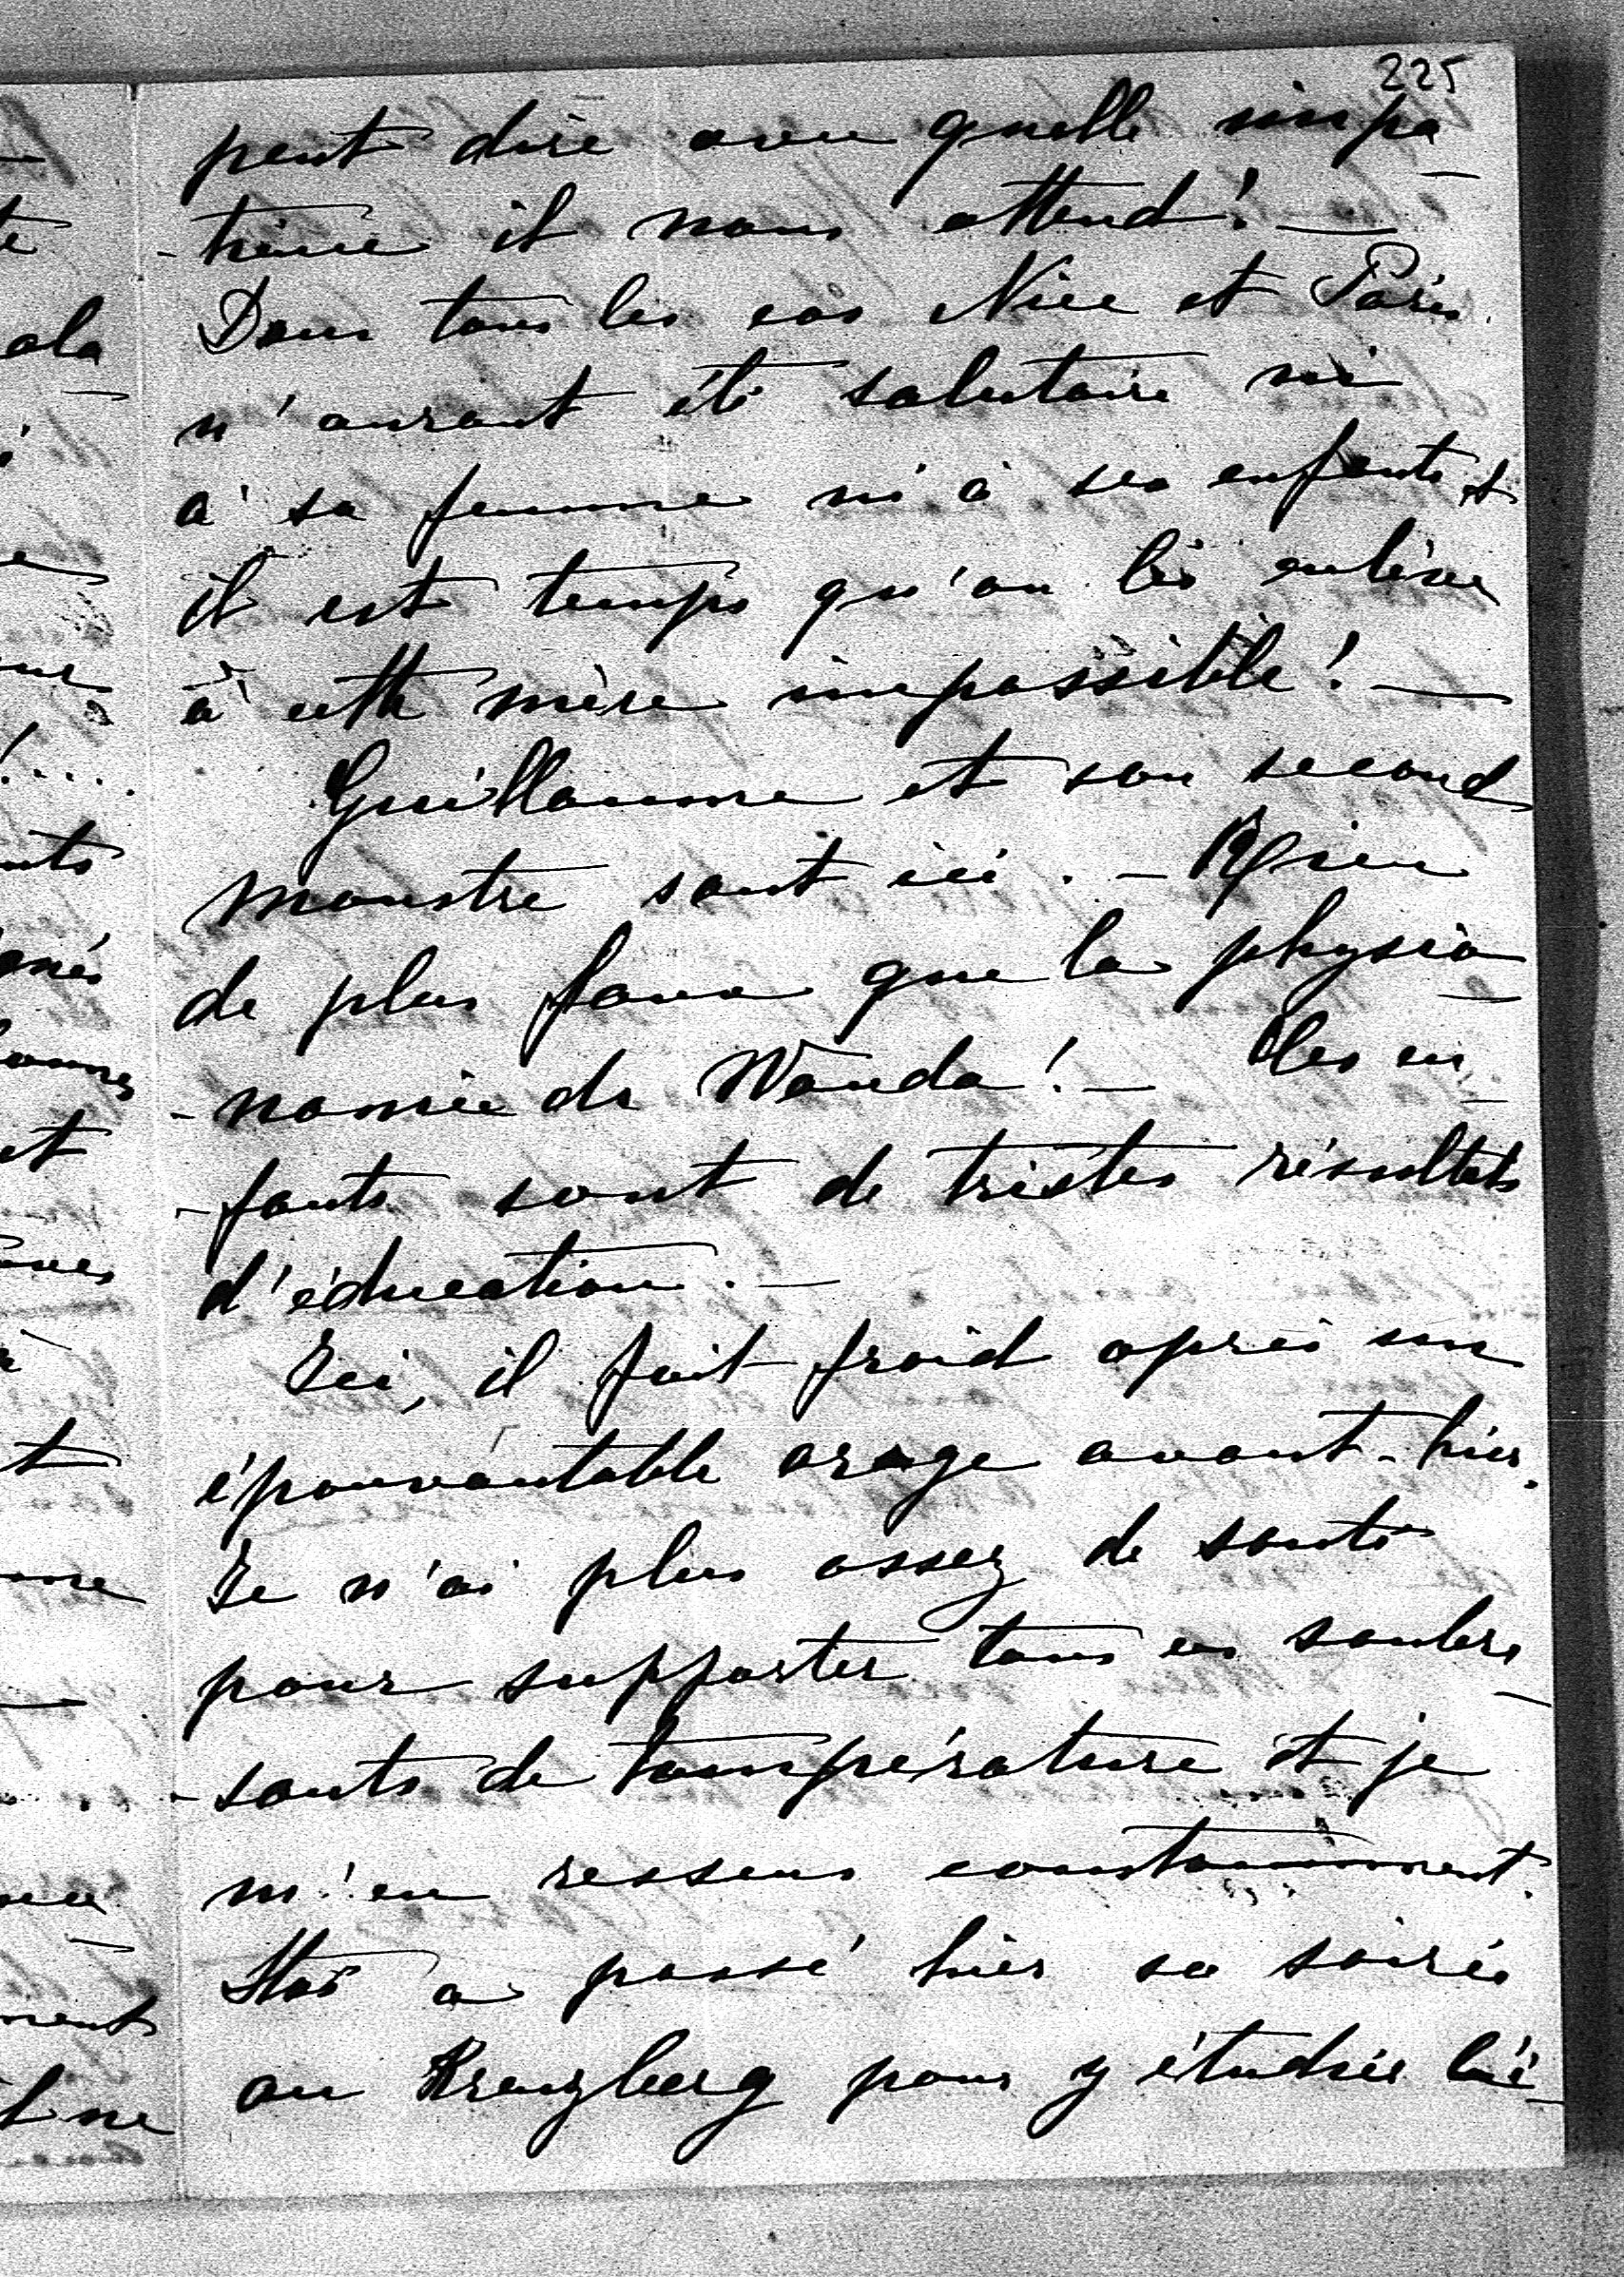 225
peut dire avec quelle impa-
-tience il nous attend! —
Dans tous les cas Nice et Paris
n'auront été salutaire ni
à sa femme ni à ses enfants et
il est temps qu'on les enlève
à cette mère impossible! —
Guillaume et son second
monstre sont ici. — Rien
de plus faux que la physio-
-nomie de Wanda! — Les en-
-fants sont de tristes résultats
d'éducation. —
Ici, il fait froid après un
épouvantable orage avant-hier.
Je n'ai plus assez de santé
pour supporter tous ces soubre-
-sauts de température et je
m'en ressens constamment.
Stas a passé hier sa soirée
au Kreuzberg pour y étudier l'é-